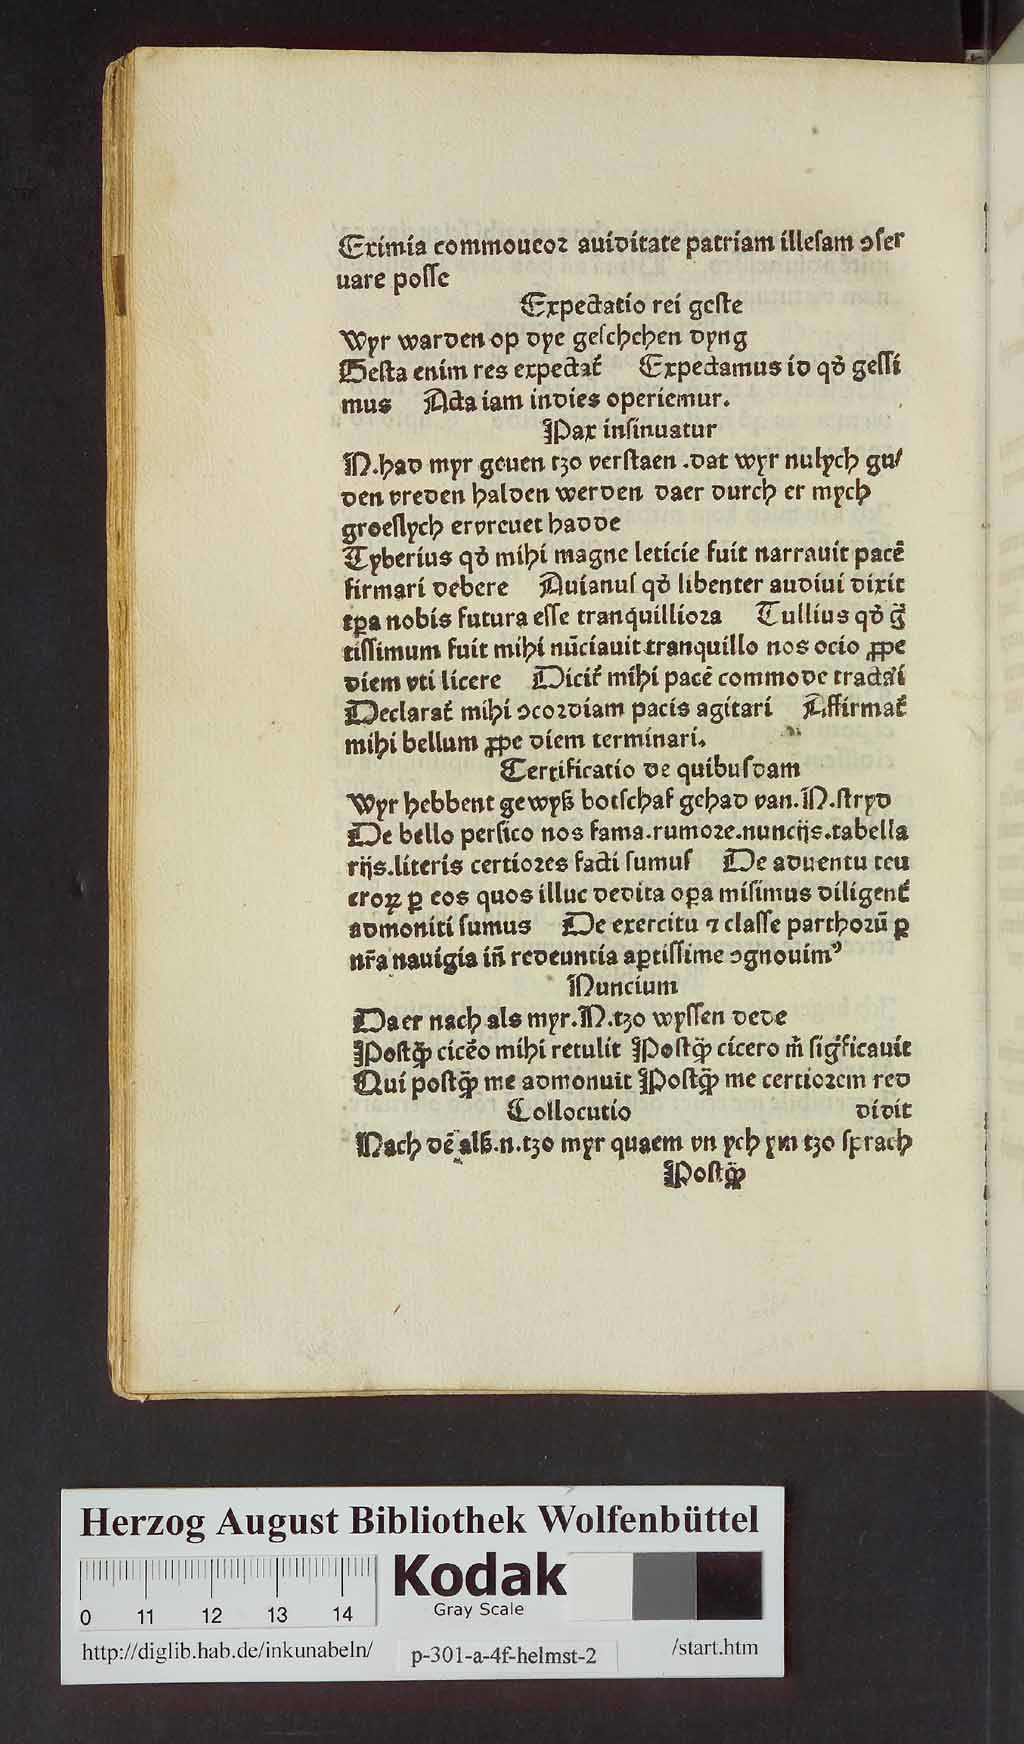 Eximia commoueor auiditate patriam illesam ↄſer
uare poſſe
Expectatio rei geſte
Wyr warden op dye geſchehen dyng
Geſta enim res expectat᷑ Expectamus id qd̛ geſſi
mus Acta iam indies operiemur.
Pax inſinuatur
N.had myr geuen tzo verſtaen .dat wyr nulych gu/
den vreden halden werden daer durch er mych
groeſlych ervreuet hadde
Tyberius qd̛ mihi magne leticie fuit narrauit pacē
firmari debere Auianuſ qd̛ libenter audiui dixit
tꝑa nobis futura eſſe tranq̇uilliora Tullius qd̛ g̃
tiſſimum fuit mihi nūciauit tranquillo nos ocio ꝓpe
diem vti licere Dicit᷑ mihi pacē commode tractari
Declarat᷑ mihi ↄcordiam pacis agitari Affirmat᷑
mihi bellum ꝓpe diem terminari.
Certificatio de quibuſdam
Wyr hebbent gewyß botſchaf gehad van.N.ſtryd
De bello perſico nos fama.rumore.nuncijs.tabella
rijs.literis certiores facti ſumuſ De aduentu teu
croꝝ ꝑ eos quos illuc dedita oꝑa miſimus diligent᷑
admoniti ſumus De exercitu ⁊ claſſe parthorū ꝑ
nr̃a nauigia in̄ redeuntia aꝑtiſſime ↄgnouimꝰ
Nuncium
Daer nach als myr.N.tzo wyſſen dede
Poſtq̃ꝫ cicēo mihi retulit Poſtq̃ꝫ cicero m̄ ſigficauit
Qui poſtq̃ꝫ me admonuit Poſtq̃ꝫ me certiorem red
Collocutio didit
Nach dē alß.n.tzo myr quaem vn ych ym tzo ſprach
Poſtq̃ꝫ
Herzog August Bibliothek Wolfenbüttel
0 11 12 13 14
Kodak
Gray Scale
http://diglib.hab.de/inkunabeln/ p-301-a-4f-helmst-2 /start.htm